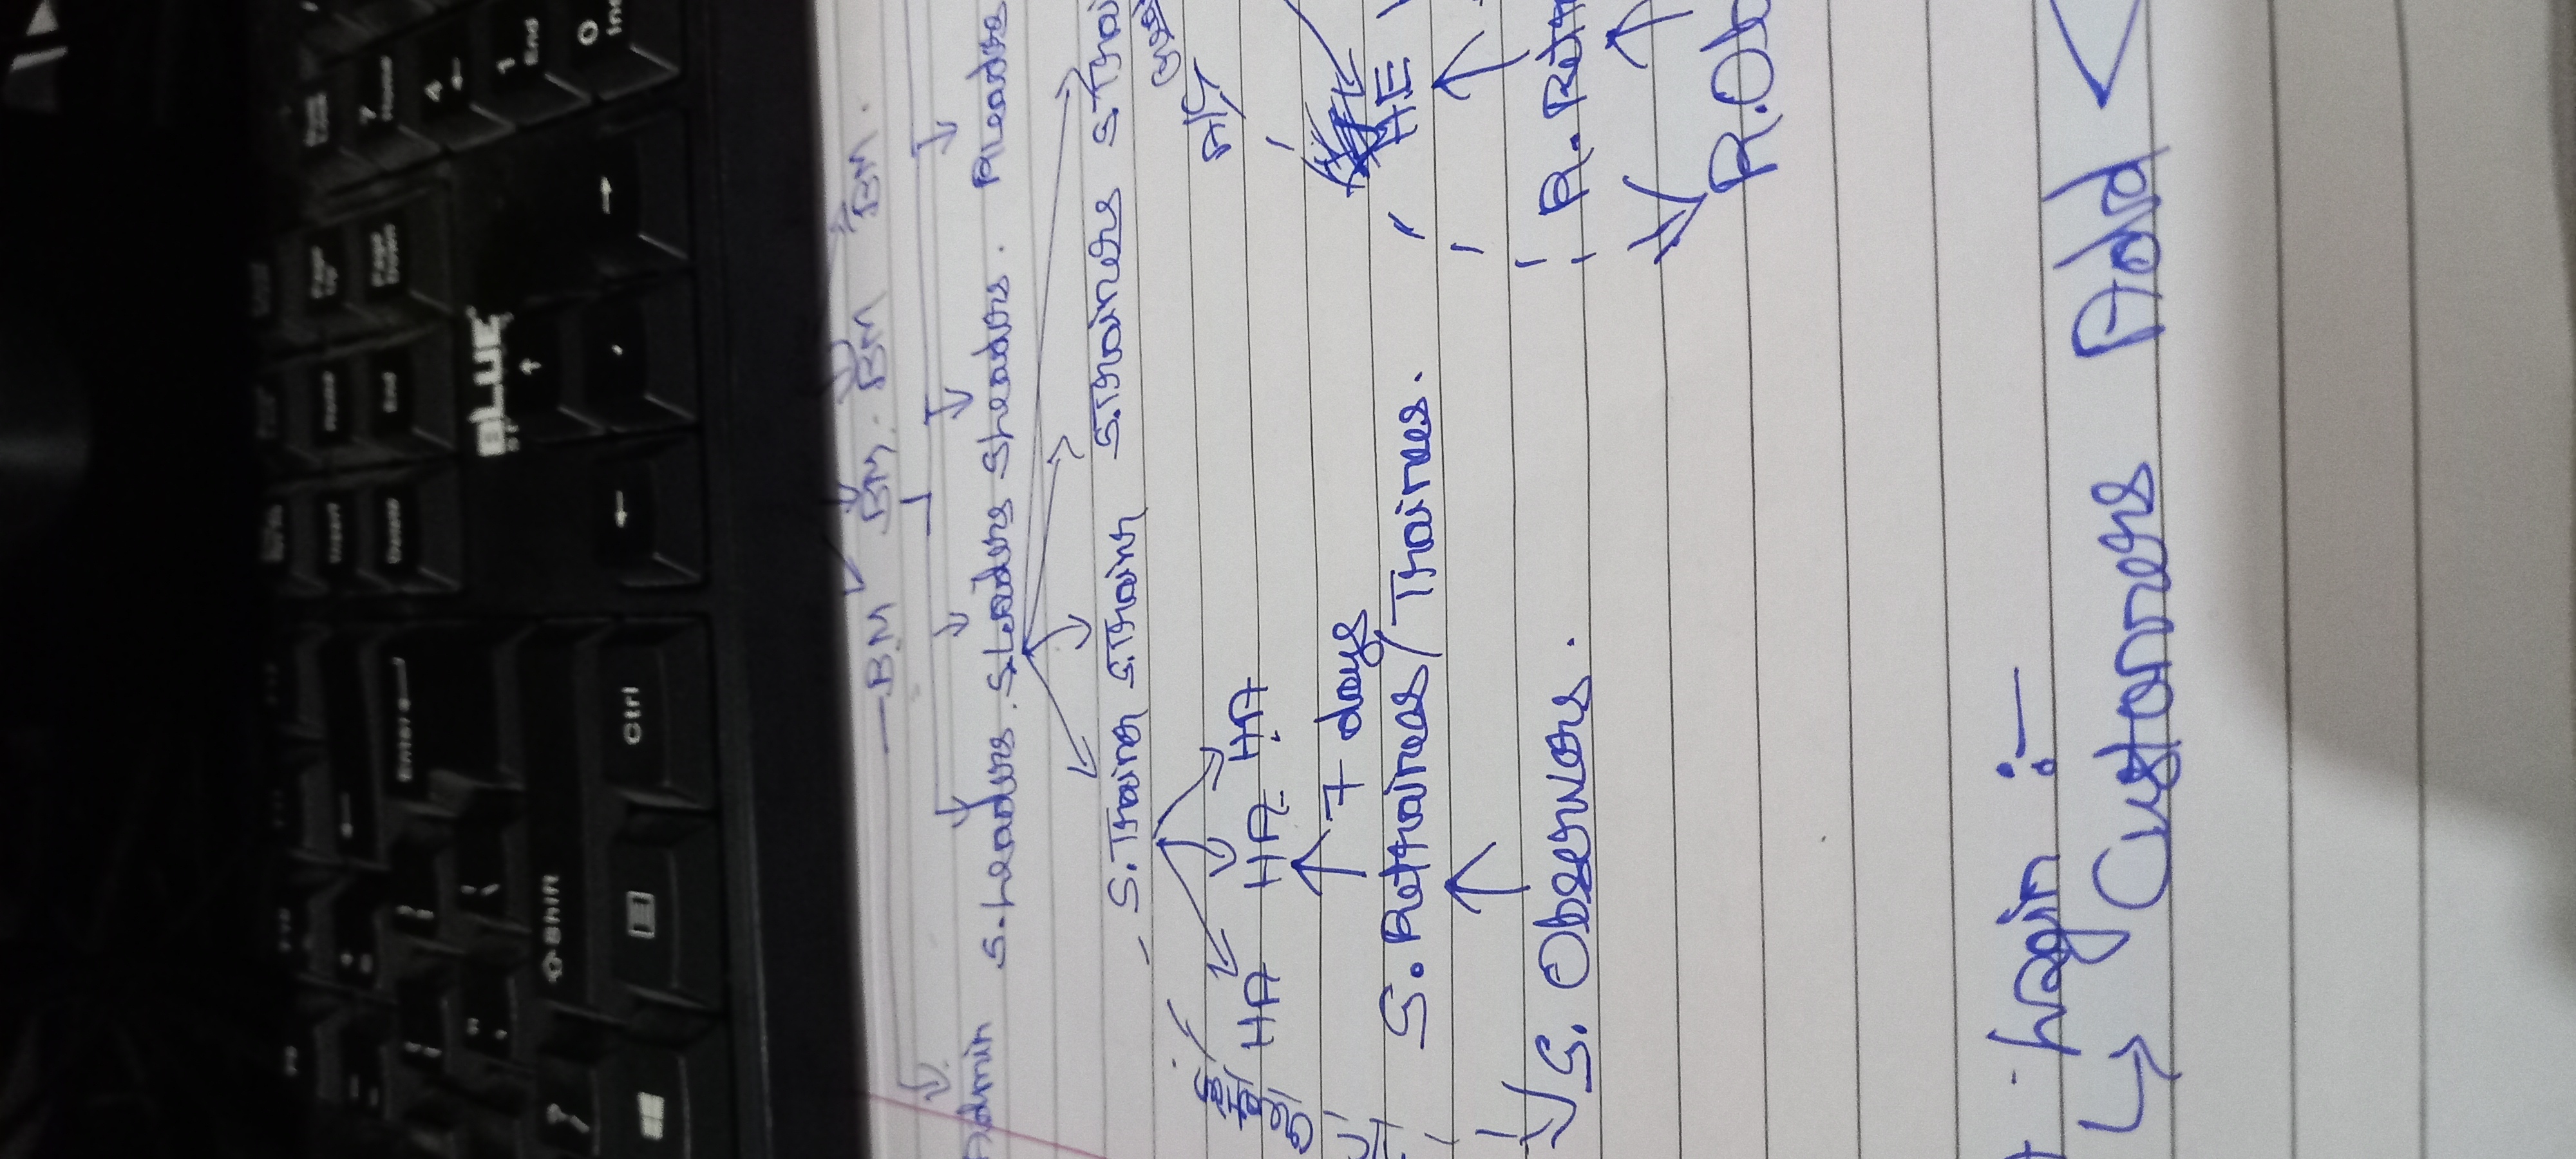 Insert Home Page Up Num Lock
Delete End Page Down 7 Home
Enter
4
BLUE
1 End
Shift
0 Ins
Ctrl
BM BM. BM BM.
Admin S.Leaders. S.Leaders SLeaders. RLeaders
S.Trainer S.Trainr S.Trainers S.Trai
A/C
HA HA HA
7 days
S. Retrainees/Trainees. A.E
S. Observers. R. Retr
R.Ob
Login :-
Customers Add <